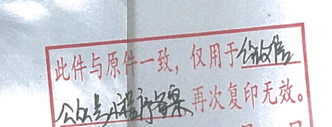 此件与原件一致，仅用于微信
公众号小程序备案再次复印无效。